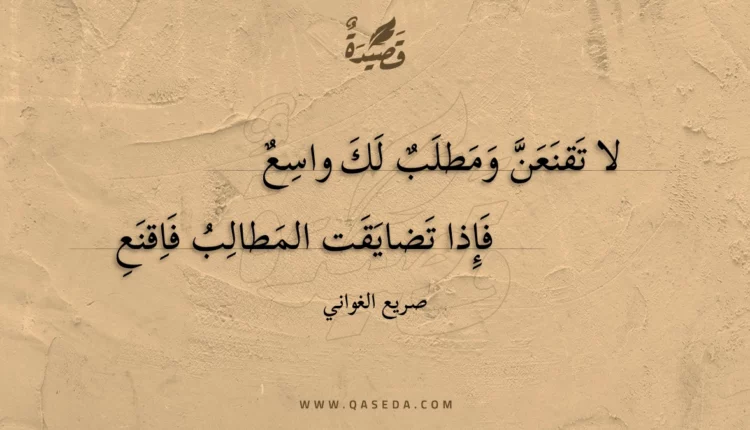 قَصِيدَةٌ
لا تَقنَعَنَّ وَمَطلَبٌ لَكَ واسِعٌ
فَإِذا تَضايَقَت المَطالِبُ فَاِقنَعِ
صريع الغواني
WWW.QASEDA.COM